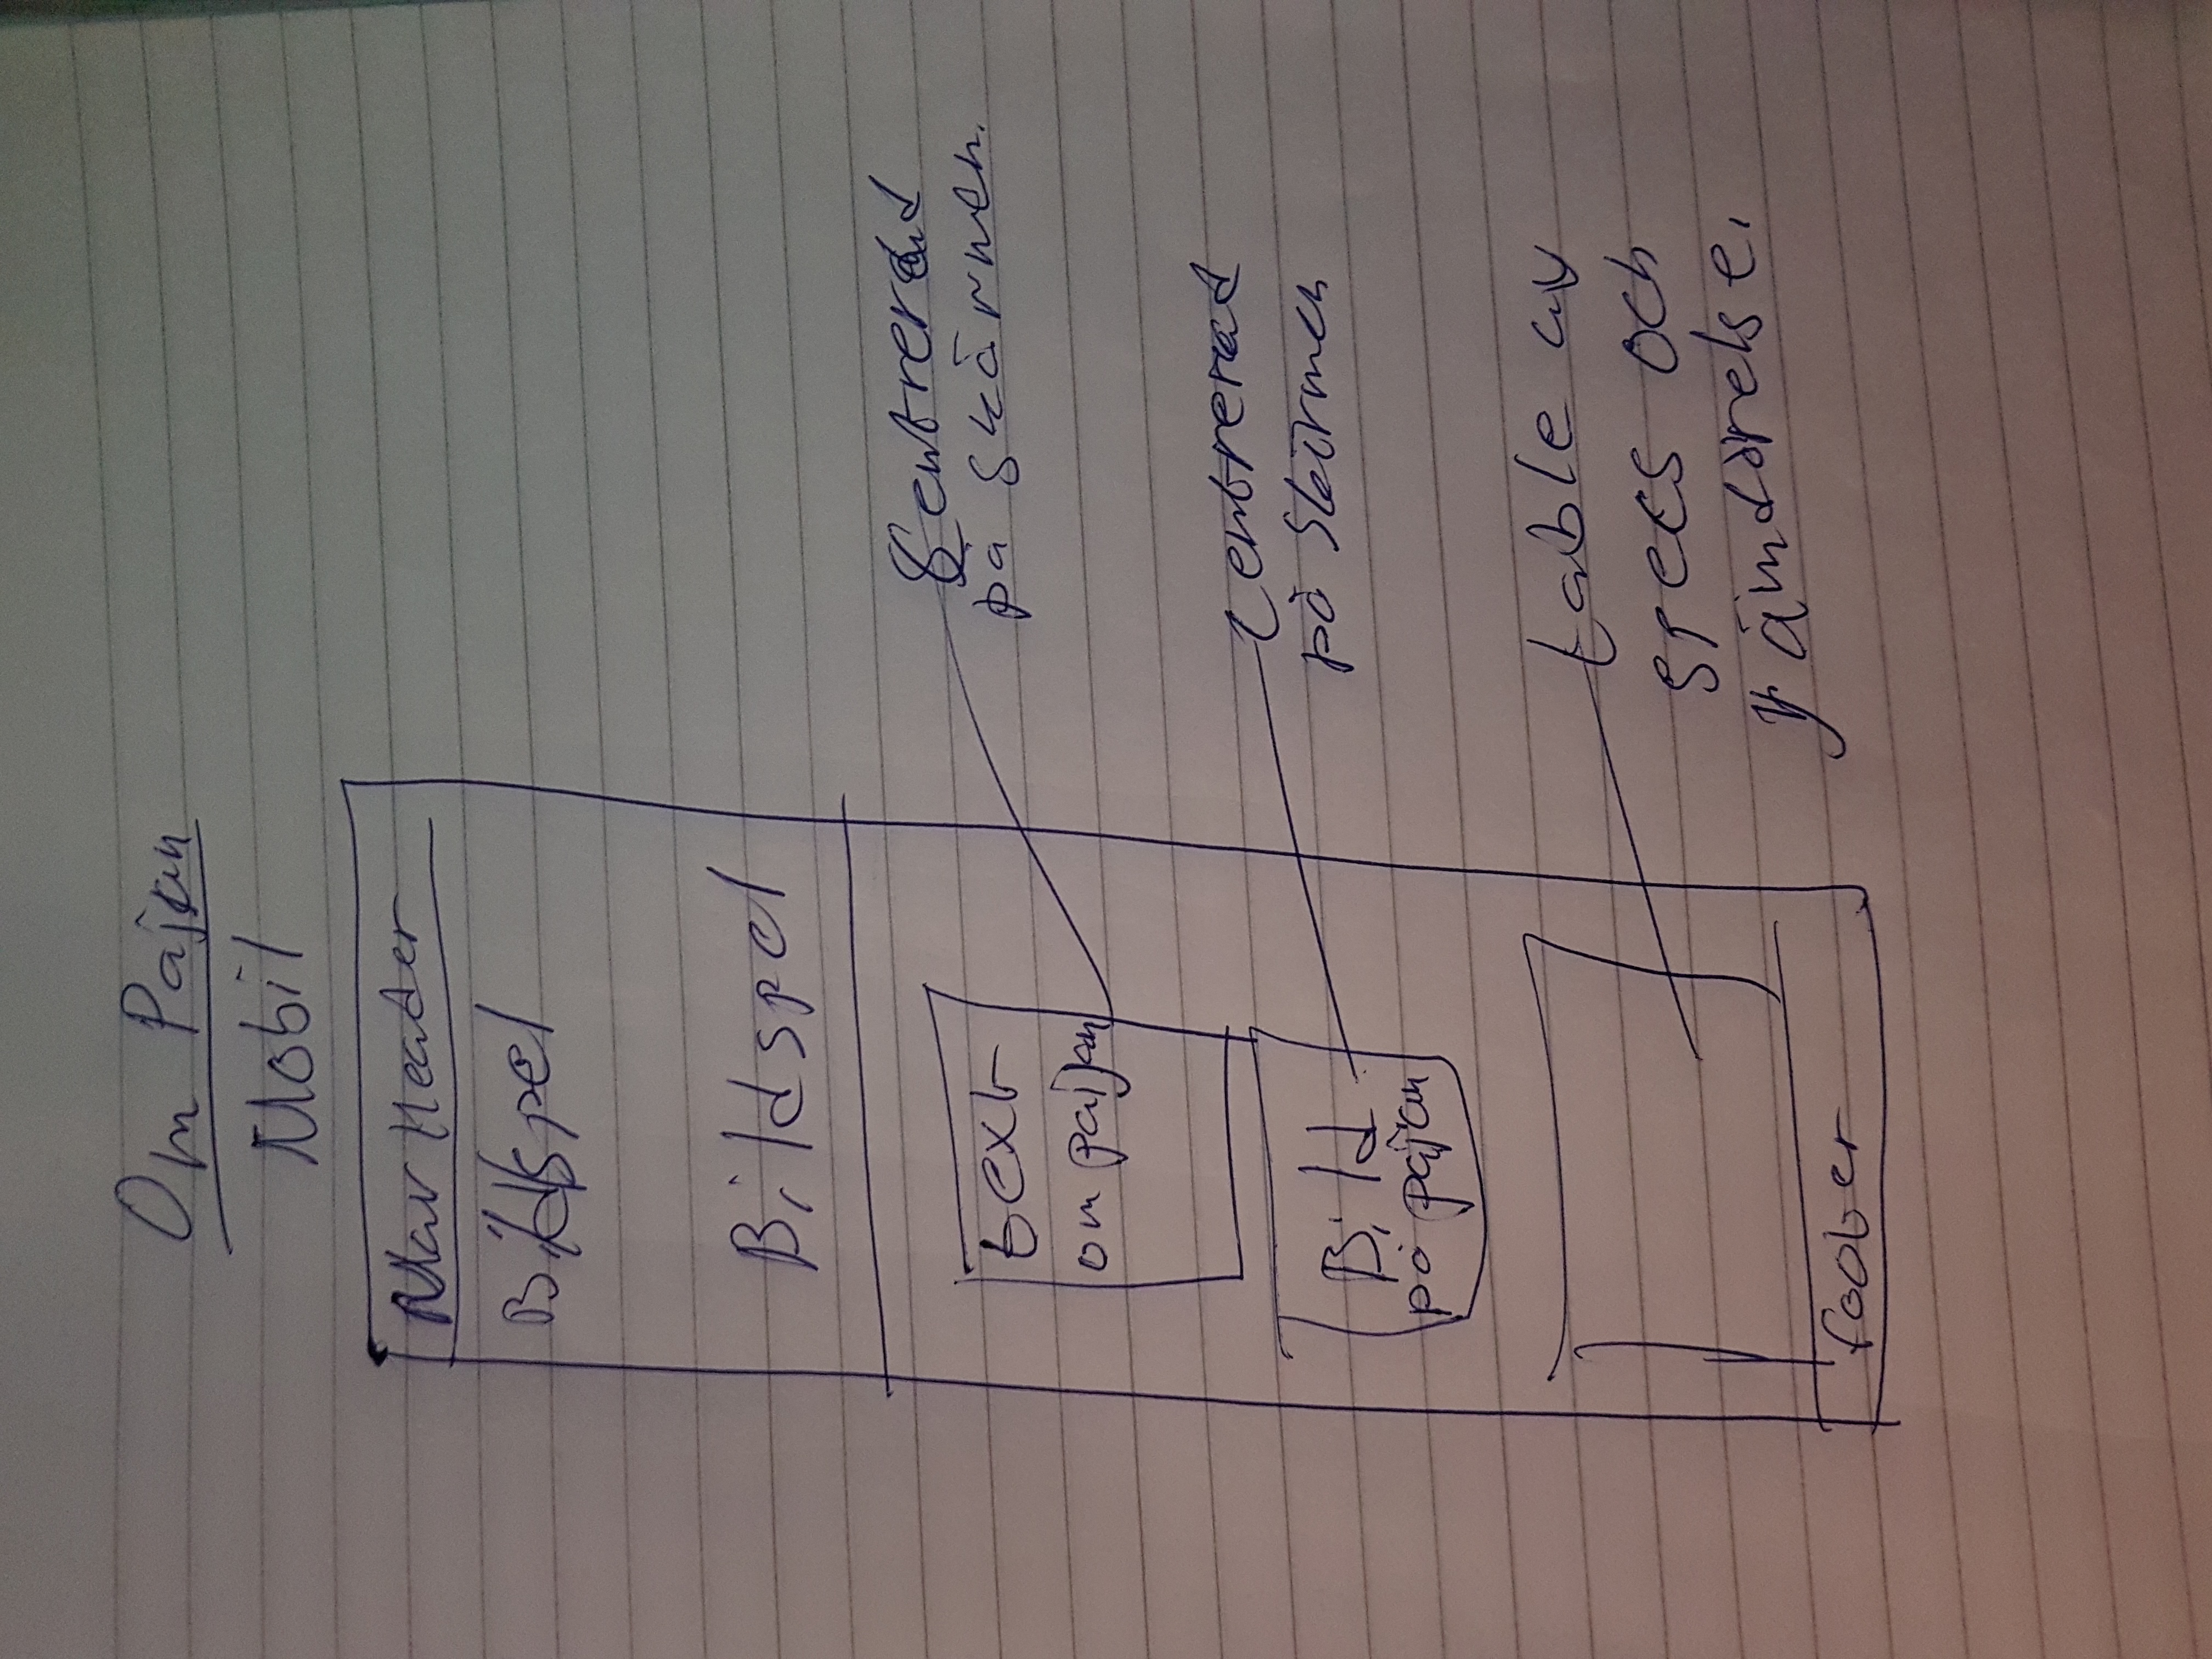 Om Pajan
Mobil
Nav Header
Bildspel
Bildspel
text
om pajan
Centrerad
på skärmen.
Bild
på pajan
Centrerad
på Skärmen
table av
specs och
jämförelse.
footer